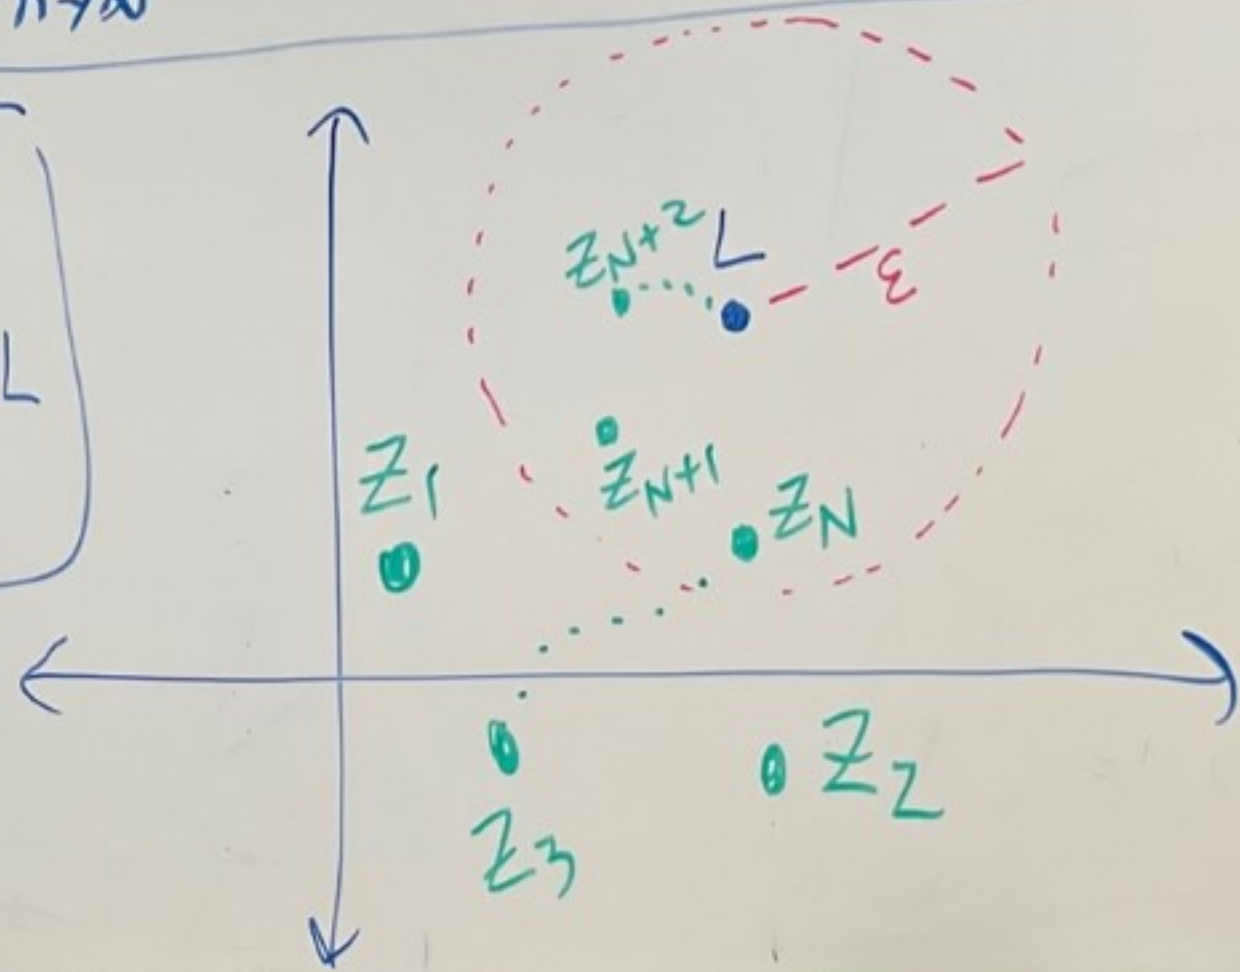 n→∞
L
Z_{N+2}
L
ε
Z_1
Z_{N+1}
Z_N
Z_2
Z_3